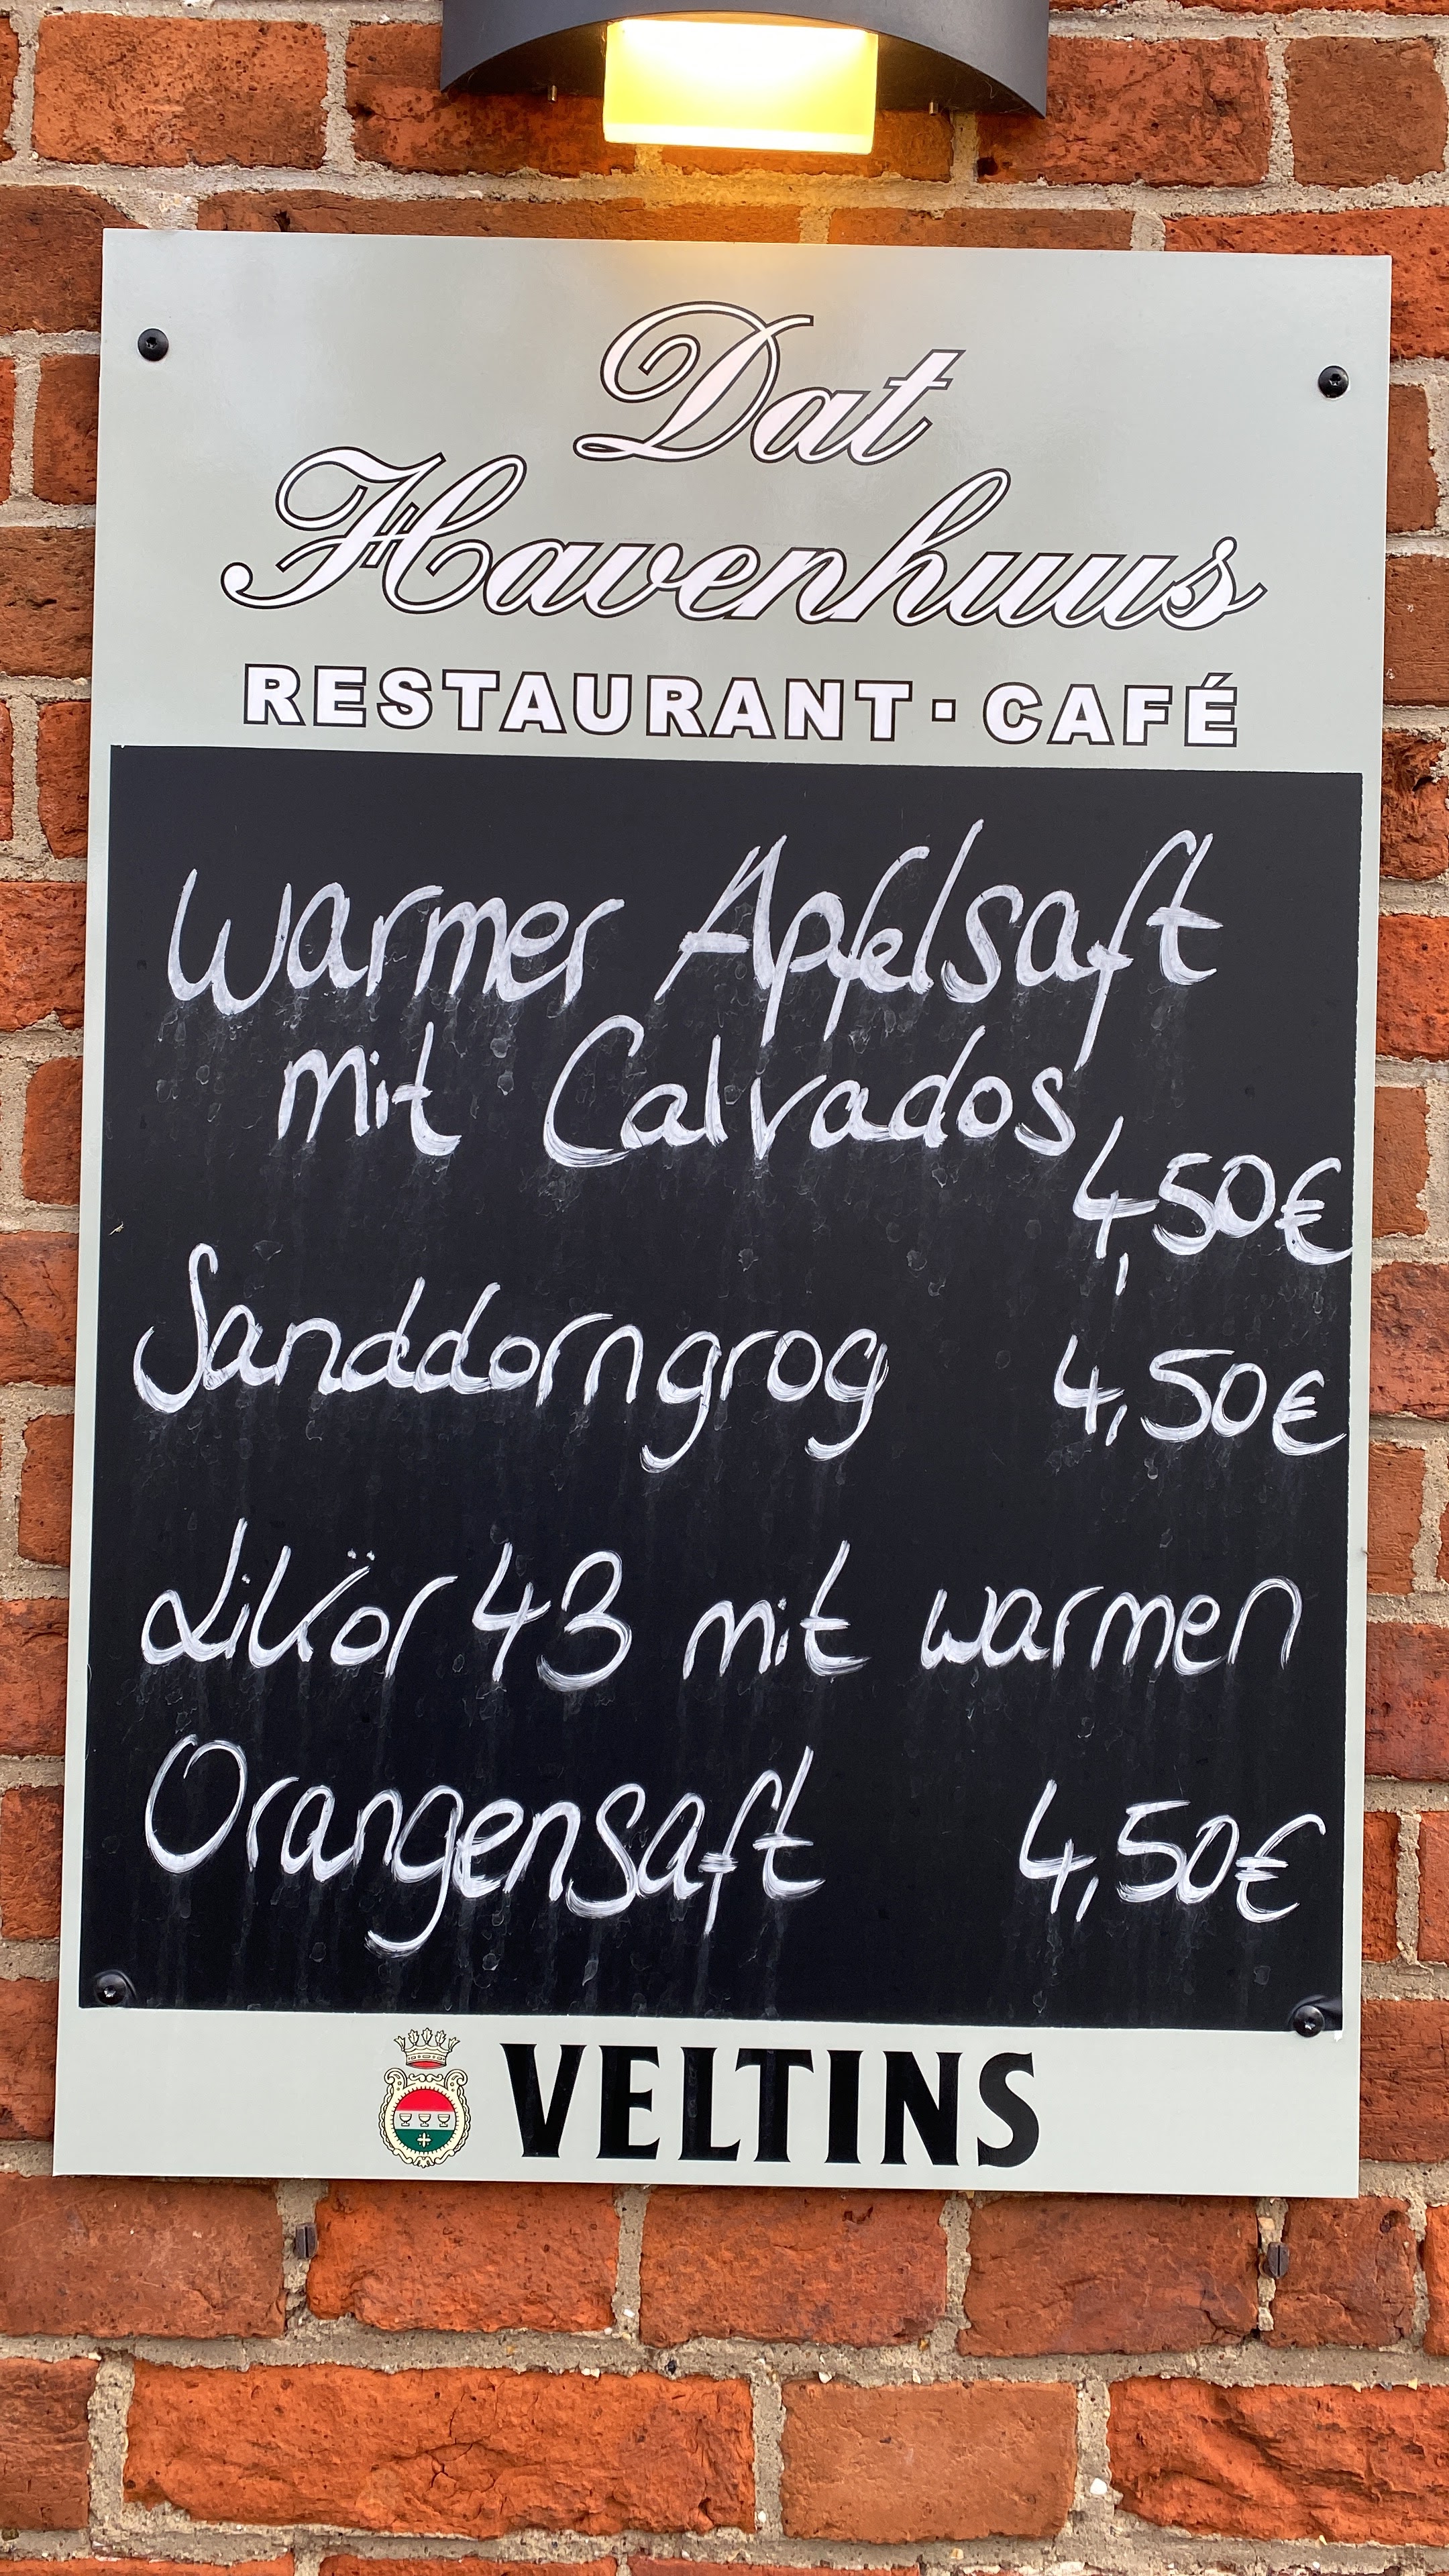 Dat
Havenhuus
RESTAURANT · CAFÉ
Warmer Apfelsaft
mit Calvados
4,50€
Sanddorngrog 4,50€
Likör 43 mit warmen
Orangensaft 4,50€
VELTINS